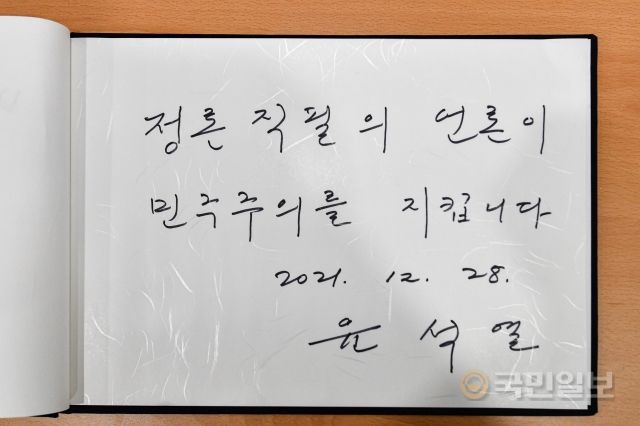 정론직필의 언론이
민주주의를 지킵니다
2021. 12. 28.
윤석열
국민일보